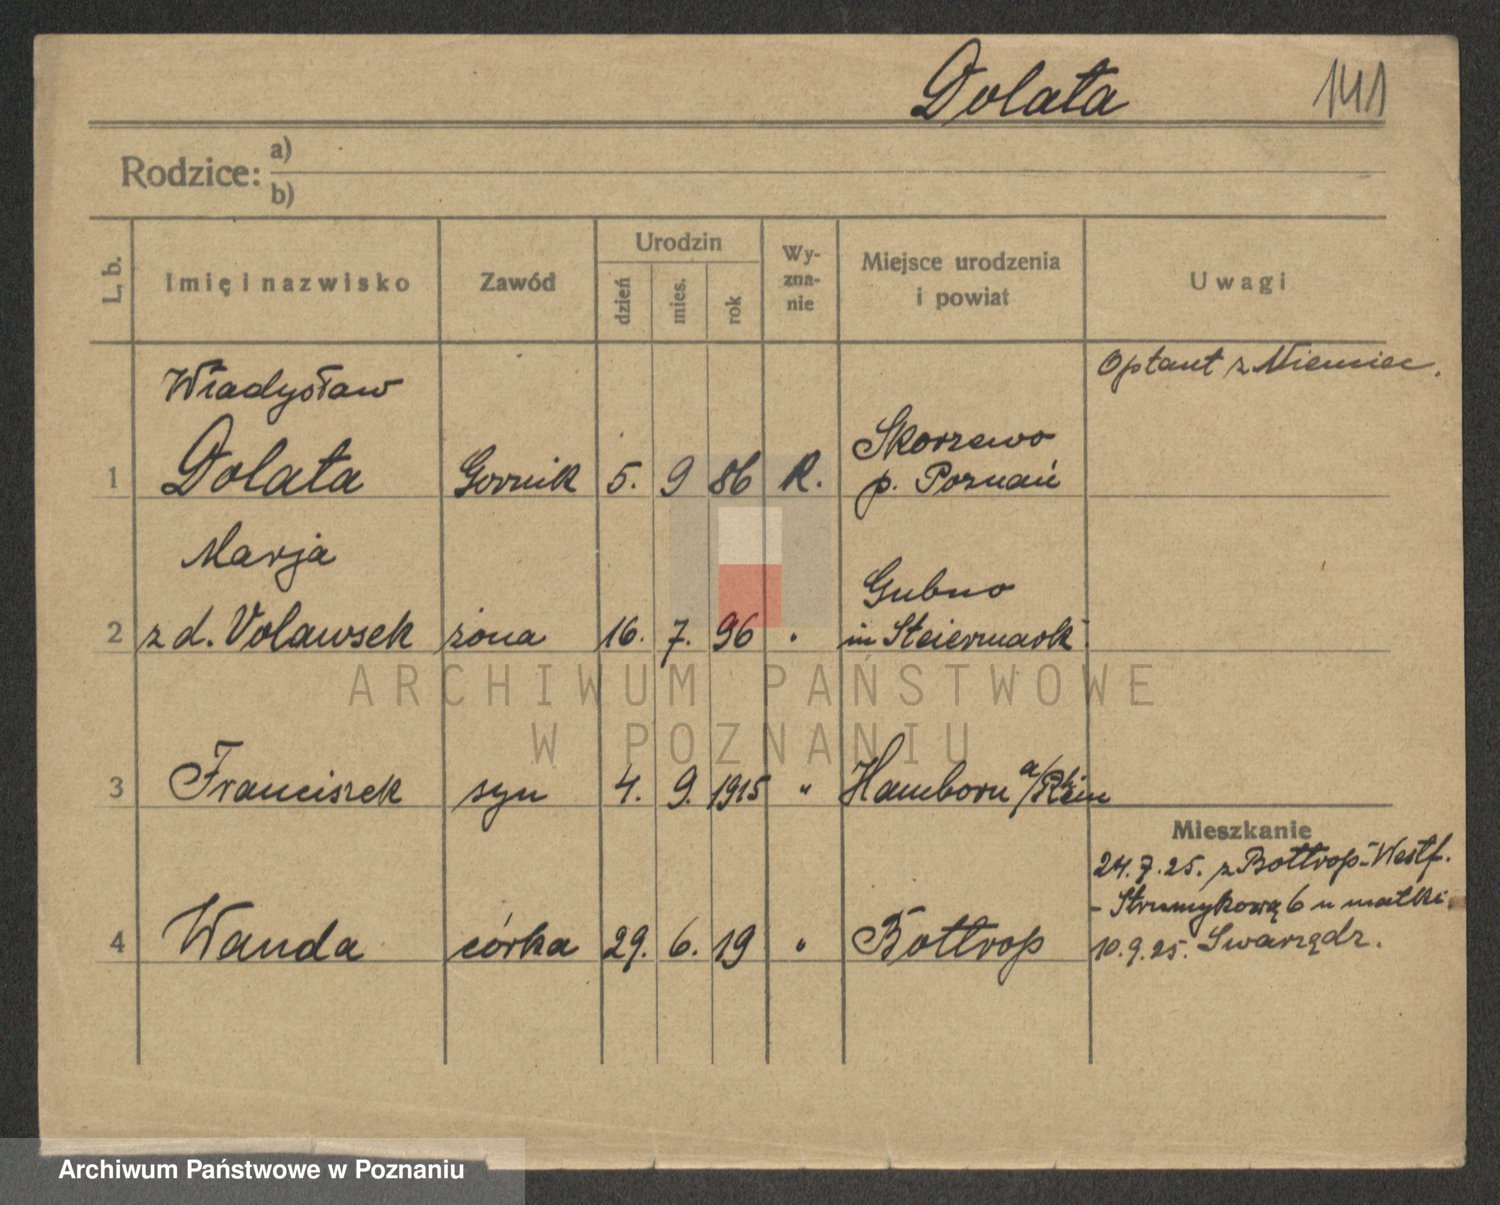 Dolata
141
Rodzice:
a)
b)
L. b.
Imię i nazwisko
Zawód
Urodzin
dzień
mies.
rok
Wy-
zna-
nie
Miejsce urodzenia
i powiat
Uwagi
Optant z Niemiec.
Władysław
1 Dolata Gornik 5. 9 86 R. Skorzewo
p. Poznań
Marja
2 z d. Volawsek żona 16. 7. 96 " Gubno
in Steiermark
3 Franciszek syn 4. 9. 1915 " Hamborn a/Rhein
Mieszkanie
24.7.25. z Bottrop-Westf.
- Strumykowa 6 u matki.
4 Wanda córka 29. 6. 19 " Bottrop
10.9.25. Swarządz.
ARCHIWUM PAŃSTWOWE
W POZNANIU
Archiwum Państwowe w Poznaniu